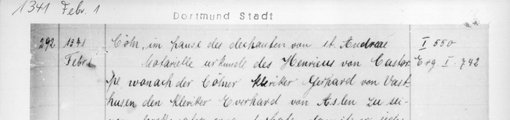 1341 Febr. 1
Dortmund Stadt
292 1341 Cöln, im hause des dechanten von st. Andreae I 550
Febr 1 Notarielle urkunde des Henricus von Castor Erg I 742
pe wonach der Cölner kleriker Gerhard von Vast
husen den kleriker Everhard von Aslen zu sei-